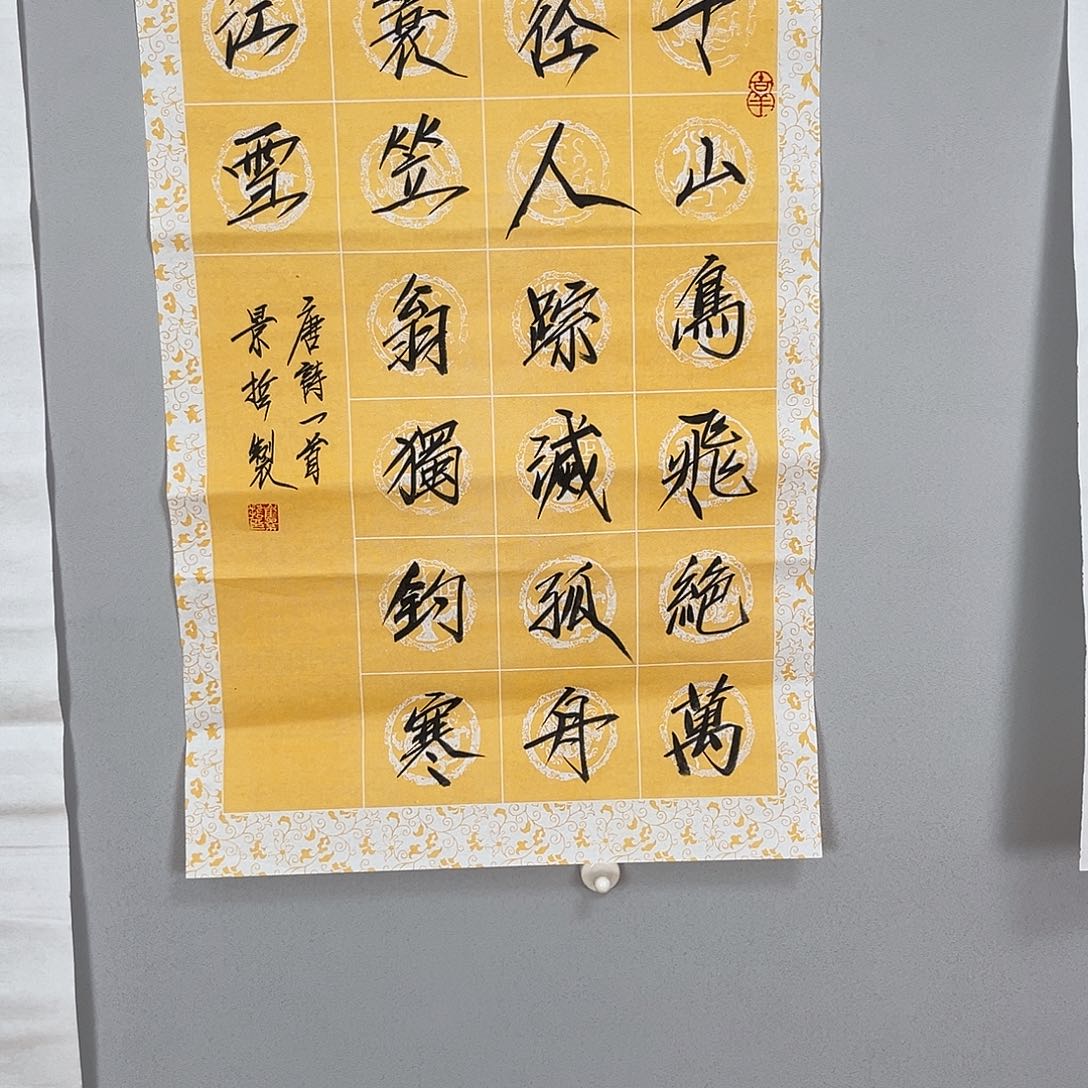 千山鳥飛絶萬
径人踪滅孤舟
蓑笠翁獨釣寒
江雪
唐詩一首
景哲製
吉羊